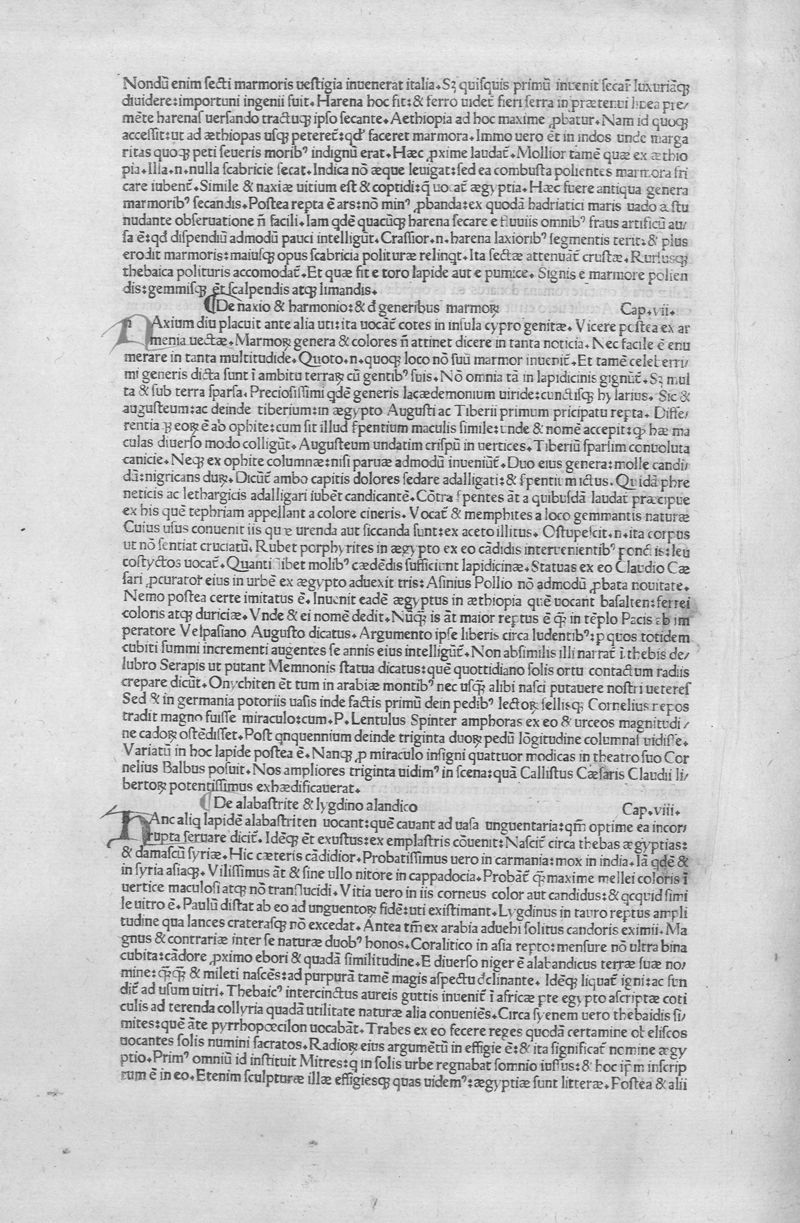 Nondū enim ſecti marmoris ueſtigia inuenerat italia. Sꝫ quiſquis primū inuenit ſecar̄ luxuriāq;
diuidere: importuni ingenii fuit. Harena hoc fit: & ferro uidet̄ fieri ſerra in prætenui linea pre/
mēte harenaſ uerſando tractuq; ipſo ſecante. Aethiopia ad hoc maxime ꝓbatur. Nam id quoq;
acceſſit: ut ad æthiopas uſq; peteret: qd' faceret marmora. Immo uero ēt in indos unde marga
ritas quoq; peti ſeueris moribꝰ indignū erat. Hæc ꝓxime laudat̄. Mollior tamē quæ ex æthio
pia. Illa .n. nulla ſcabricie ſecat. Indica nō æque leuigat: ſed ea combuſta polientes marmora fri
care iubent̄. Simile & naxiæ uitium eſt & coptidi: q̄ uocat̄ ægyptia. Hæc fuere antiqua genera
marmoribꝰ ſecandis. Poſtea repta ē ars: nō minꝰ ꝓbanda: ex quodā hadriatici maris uado aſtu
nudante obſeruatione n̄ facili. Iam qdē quacūq; harena ſecare e fluuiis omnibꝰ fraus artificū au/
ſa ē: qd diſpendiū admodū pauci intelligūt. Craſſior .n. harena laxioribꝰ ſegmentis terit: & plus
erodit marmoris: maiuſq; opus ſcabricia polituræ relinqt. Ita ſectæ attenuāt̄ cruſtæ. Rurſuſq;
thebaica polituris accomodat̄. Et quæ fit e toro lapide aut e pumice. Signis e marmore polien
dis: gemmiſq; ēt ſcalpendis atq; limandis.
¶ De naxio & harmonio: & d̄ generibus marmoꝝ Cap. vii.
NAxium diu placuit ante alia uti: ita uocat̄ cotes in inſula cypro genitæ. Vicere poſtea ex ar
menia uectæ. Marmoꝝ genera & colores n̄ attinet dicere in tanta noticia. Nec facile ē enu
merare in tanta multitudide. Quoto .n. quoq; loco nō ſuū marmor inuenit̄. Et tamē celeberri/
mi generis dicta ſunt ī ambitu terraꝝ cū gentibꝰ ſuis. Nō omnia tā in lapidicinis gignūt̄. Sꝫ mul
ta & ſub terra ſparſa. Precioſiſſimi qdē generis lacædemonium uiride: cunctiſq; hylarius. Sic &
auguſteum: ac deinde tiberium: in ægypto Auguſti ac Tiberii primum pricipatu repta. Diffe/
rentia q; eoꝝ ē ab ophite: cum ſit illud ſpentium maculis ſimile: unde & nomē accepit: q; hæ ma
culas diuerſo modo colligūt. Auguſteum undatim criſpū in uertices. Tiberiū ſparſim conuoluta
canicie. Neq; ex ophite columnæ: niſi paruæ admodū inueniūt̄. Duo eius genera: molle candi/
dā: nigricans duꝝ. Dicūt̄ ambo capitis dolores ſedare adalligati: & ſpentiū mictus. Quidā phre
neticis ac lethargicis adalligari iubēt candicantē. Cōtra ſpentes āt a quibuſdā laudat̄ præcipue
ex his quē tephriam appellant a colore cineris. Vocat̄ & memphites a loco gemmantis naturæ
Cuius uſus conuenit iis quæ urenda aut ſiccanda ſunt: ex aceto illitus. Oſtupeſcit .n. ita corpus
ut nō ſentiat cruciatū. Rubet porphyrites in ægypto ex eo cādidis interuenientibꝰ ponctis: leu
coſtyctos uocat̄. Quantiſlibet molibꝰ cædēdis ſufficiunt lapidicinæ. Statuas ex eo Claudio Cæ
ſari ꝓcurator eius in urbē ex ægypto aduexit tris: Aſinius Pollio nō admodū ꝓbata nouitate.
Nemo poſtea certe imitatus ē. Inuenit eadē ægyptus in æthiopia quē uocant baſalten: ferrei
coloris atq; duriciæ. Vnde & ei nomē dedit. Nūq; is āt maior reptus ē q̄ in tēplo Pacis ab im
peratore Veſpaſiano Auguſto dicatus. Argumento ipſe liberis circa ludentibꝰ: p quos totidem
cubiti ſummi incrementi augentes ſe annis eius intelligūt̄. Non abſimilis illi narrat̄ ī thebis de/
lubro Serapis ut putant Memnonis ſtatua dicatus: quē quottidiano ſolis ortu contactum radiis
crepare dicūt. Onychiten ēt tum in arabiæ montibꝰ nec uſq; alibi naſci putauere noſtri ueteres
Sed & in germania potoriis uaſis inde factis primū dein pedibꝰ lectoꝝ ſelliſq;. Cornelius repos
tradit magno fuiſſe miraculo: cum .P. Lentulus Spinter amphoras ex eo & urceos magnitudi/
ne cadoꝝ oſtēdiſſet. Poſt qnquennium deinde triginta duoꝝ pedū lōgitudine columnaſ uidiſſe.
Variatū in hoc lapide poſtea ē. Nanq; ꝓ miraculo inſigni quattuor modicas in theatro ſuo Cor
nelius Balbus poſuit. Nos ampliores triginta uidimꝰ in ſcena: quā Calliſtus Cæſaris Claudii li/
bertoꝝ potentiſſimus exhædificauerat.
¶ De alabaſtrite & lygdino alandico Cap. viii.
HAnc aliq lapidē alabaſtriten uocant: quē cauant ad uaſa unguentaria: qm̄ optime ea incor/
rupta ſeruare dicit̄. Idēq; ēt exuſtus: ex emplaſtris cōuenit: Naſcit̄ circa thebas ægyptias:
& damaſcū ſyriæ. Hic cæteris cādidior. Probatiſſimus uero in carmania: mox in india. Iā qdē &
in ſyria aſiaq;. Viliſſimus āt & ſine ullo nitore in cappadocia. Probāt̄ q̄ maxime mellei coloris ī
uertice maculoſi atq; nō tranſlucidi. Vitia uero in iis corneus color aut candidus: & qcquid ſimi
le uitro ē. Paulū diſtat ab eo ad unguentoꝝ fidē: uti exiſtimant. Lygdinus in tauro reptus ampli
tudine qua lances crateraſq; nō excedat. Antea tm̄ ex arabia aduehi ſolitus candoris eximii. Ma
gnus & contrariæ inter ſe naturæ duobꝰ honos. Coralitico in aſia repto: menſure nō ultra bina
cubita: cādore ꝓximo ebori & quadā ſimilitudine. E diuerſo niger ē alabandicus terræ ſuæ no/
mine: q̄q; & mileti naſcēs: ad purpurā tamē magis aſpectu declinante. Idēq; liquat̄ igni: ac fun
dit̄ ad uſum uitri. Thebaicꝰ intercinctus aureis guttis inuenit̄ ī africæ pte egypto aſcriptæ coti
culis ad terenda collyria quadā utilitate naturæ alia conueniēs. Circa ſyenem uero thebaidis ſi/
mites: quē āte pyrrhopœcilon uocabāt. Trabes ex eo fecere reges quodā certamine obeliſcos
uocantes ſolis numini ſacratos. Radioꝝ eius argumētū in effigie ē: & ita ſignificat̄ nomine ægy
ptio. Primꝰ omniū id inſtituit Mitres: q in ſolis urbe regnabat ſomnio iuſſus: & hoc ipm̄ inſcrip
tum ē in eo. Etenim ſculpturæ illæ effigieſq; quas uidemꝰ: ægyptiæ ſunt litteræ. Poſtea & alii